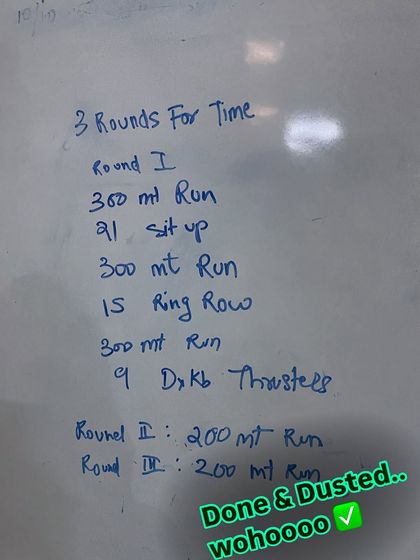 10/10
3 Rounds For Time
Round I
300 mt Run
21 Sit up
300 mt Run
15 Ring Row
300 mt Run
9 D×Kb Thrusters
Round II : 200 mt Run
Round III : 200 mt Run
Done & Dusted..
wohoooo ✅